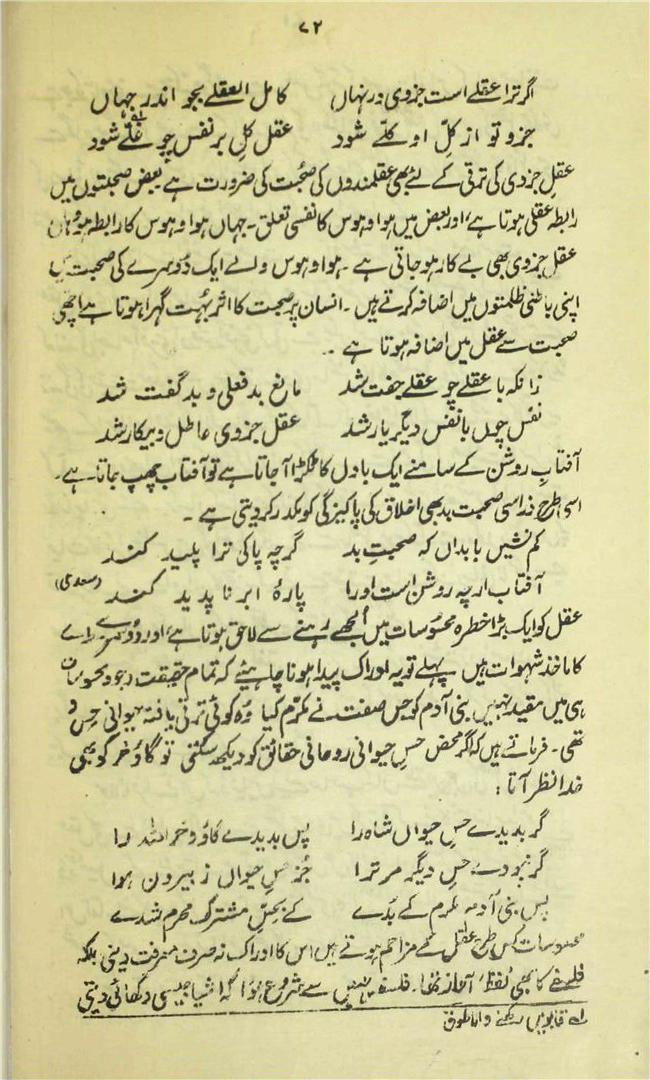 ۷۲
اگر ترا عقلے است جزوی در نہاں کامل العقلے بجو اندر جہاں
جزو تو از کلِّ او کلّے شود عقل کلِ بر نفس چو غلّے شود
عقلِ جزوی کی ترقی کے لئے بھی عقلمندوں کی صحبت کی ضرورت ہے بعض صحبتوں میں
رابطہ عقلی ہوتا ہے، اور بعض میں ہوا و ہوس کا نفسی تعلق۔ جہاں ہوا و ہوس کا رابطہ ہو وہاں
عقل جزوی بھی بے کار ہو جاتی ہے ۔ ہوا و ہوس والے ایک دوسرے کی صحبت میں
اپنی باطنی ظلمتوں میں اضافہ کرتے ہیں ۔ انسان پر صحبت کا اثر بہت گہرا ہوتا ہے اچھی
صحبت سے عقل میں اضافہ ہوتا ہے ۔۔
زانکہ با عقلے چو عقلے جفت شد مانع بد فعلی و بد گفت شد
نفس چوں با نفس دیگر یار شد عقل جزوی عاطل و بیکار شد
آفتابِ روشن کے سامنے ایک بادل کا ٹکڑا آ جاتا ہے تو آفتاب چھپ جاتا ہے۔
اسی طرح ذرا سی صحبت بد بھی اخلاق کی پاکیزگی کو مکدر کر دیتی ہے ۔
کم نشیں با بداں کہ صحبتِ بد گرچہ پاکی ترا پلید کند
آفتاب ار چہ روشن است اورا پارۂ ابر نا پدید کند (سعدی)
عقل کو ایک بڑا خطرہ محسوسات میں اُلجھے رہنے سے لاحق ہوتا ہے، اور دوسرے
کا ماخذ شہوات ہیں پہلے تو یہ ادراک پیدا ہونا چاہیئے کہ تمام حقیقت وجود محسوسات
ہی میں مقید نہیں بنی آدم کو جس صفت نے مکرّم کیا وہ کوئی ترقی یافتہ حیوانی حِس نہ
تھی ۔ فرماتے ہیں کہ اگر محض حسِ حیوانی روحانی حقائق کو دیکھ سکتی تو گاؤ خر کو بھی
خدا نظر آتا :
گر بدیدے حسِ حیواں شاہ را پس بدیدے گاؤ و خر اللہ را
گر نبودے حسِ دیگر مر ترا جُز حسِ حیواں ز بیرون ہوا
پس بنی آدم مکرم کے بدے کے بحسِّ مشترک محرم شدے
محسوسات کس طرح عقل کے مزاحم ہوتے ہیں اس کا ادراک نہ صرف معرفت دینی بلکہ
فلسفے کا بھی نقطۂ آغاز تھا ۔ فلسفہ یہیں سے شروع ہوا کہ اشیا جیسی دکھائی دیتی
لے قابو میں رکھنے والا طوق